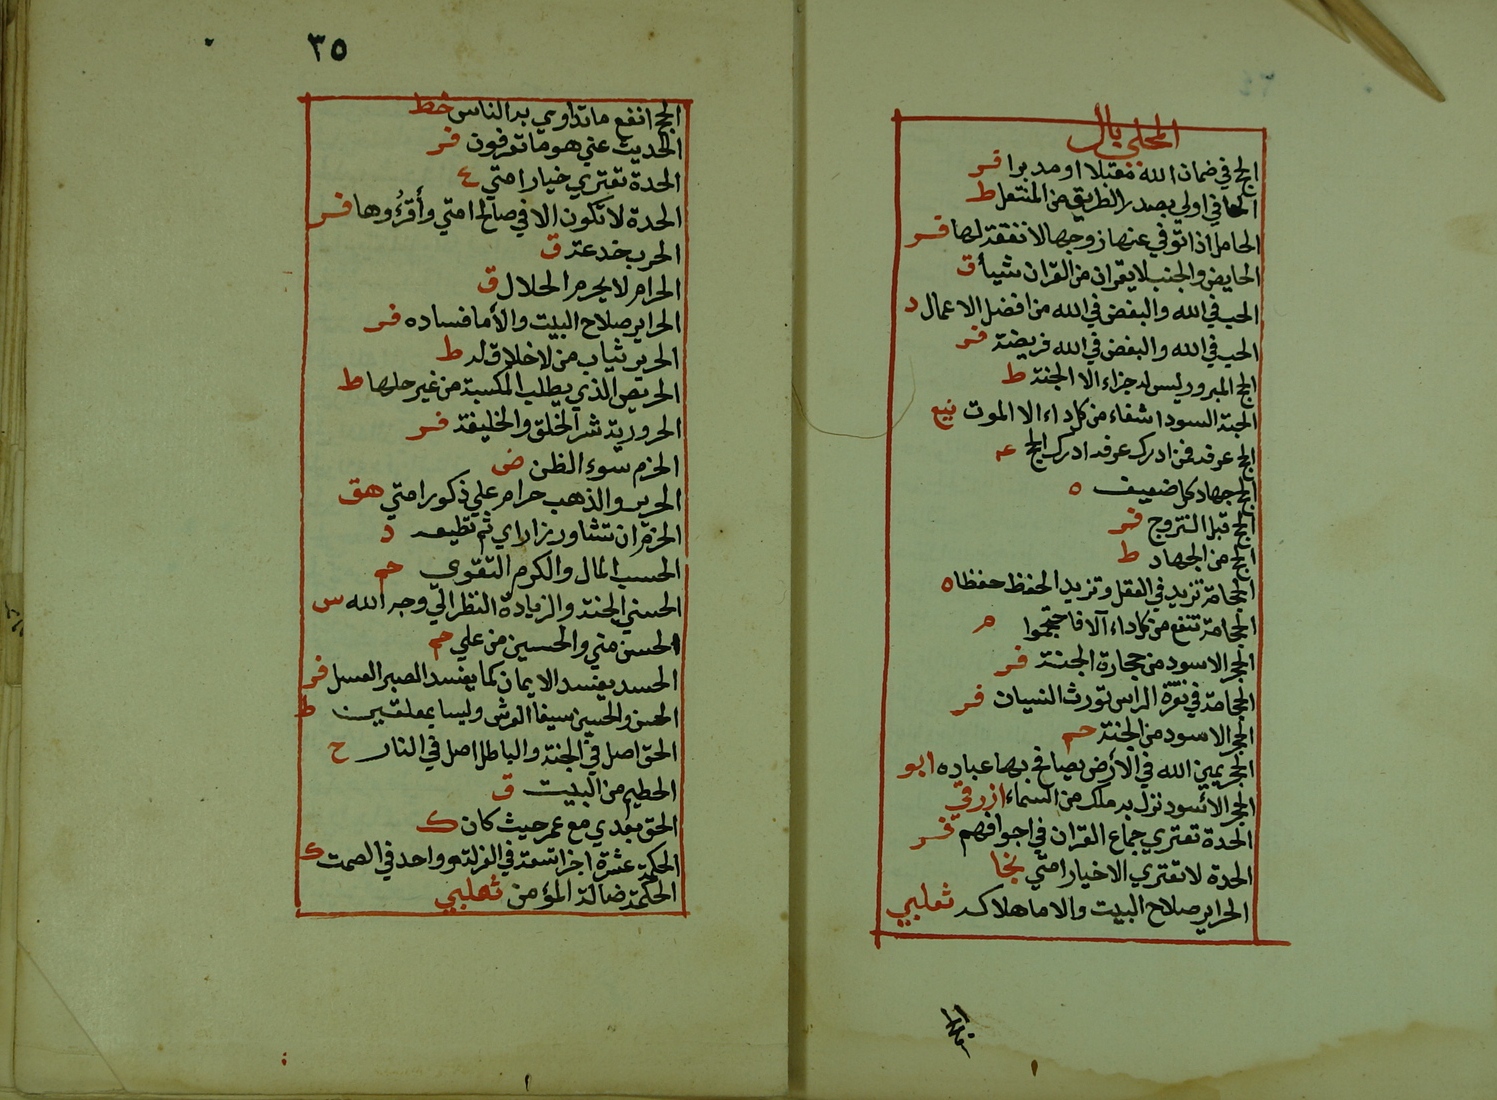 المحلي بال
الحج في ضمان الله مقبلا او مدبرا فر
الحافي اولي بصدر الطريق من المنتعل ط
الحامل اذا توفي عنها زوجها لا نفقة لها فر
الحايض والجنب لا يقران من القران شيأ ق
الحب في الله والبغض في الله من افضل الاعمال د
الحب في الله والبغض في الله فريضة فر
الحج المبرور ليس له جزاء الا الجنة ط
الحبة السودا شفاء من كل داء الا الموت نيع
الحج عرفه فمن ادرك عرفه ادرك الحج عه
الحج جهاد كل ضعيف ه
الحج قبل التزوج فر
الحج من الجهاد ط
الحجامة تزيد في العقل وتزيد الحفظ حفظا ه
الحجامة تنفع من كل داء آلا فاحتجموا م
الحجر الاسود من حجارة الجنة فر
الحجامة في نقرة الراس تورث النسيان فر
الحجر الاسود من الجنة حم
الحجر يمين الله في الأرض يصافح بها عباده ابو
الحجر الأسود نزل به ملك من السماء ازرقي
الحدة تعتري جماع القران في اجوافهم فر
الحدة لا تعتري الا خيار امتي نجا
الحراير صلاح البيت والاما هلاكه ثعلبي
٣٥
الحج انفع ما تداوي به الناس خط
الحديث عني هو ما تعرفون فر
الحدة تعتري خيار امتي ع
الحدة لا تكون الا في صالح امتي وأقرُؤها فر
الحرب خدعة ق
الحرام لا يحرم الحلال ق
الحراير صلاح البيت والأما فساده فر
الحرير ثياب من لا خلاق له ط
الحريص الذي يطلب المكسبة من غير حلها ط
الحرورية شر الخلق والخليقة فر
الحزم سوء الظن ض
الحرير والذهب حرام علي ذكور امتي هق
الحزم ان تشاور ذا راي ثم تطيعه د
الحسب المال والكرم التقوي حم
الحسني الجنة والزيادة النظر الي وجه الله س
الحسن مني والحسين من علي حم
الحسد يفسد الايمان كما يفسد الصبر العسل فر
الحسن والحسين سيفا العرش وليسا بمعلقين ط
الحق اصل في الجنة والباطل اصل في النار ح
الحطيم من البيت ق
الحق بعدي مع عمر حيث كان ك
الحكمة عشرة اجزا تسعة في العزلة وواحد في الصمت ك
الحكمة ضالة المؤمن ثعلبي